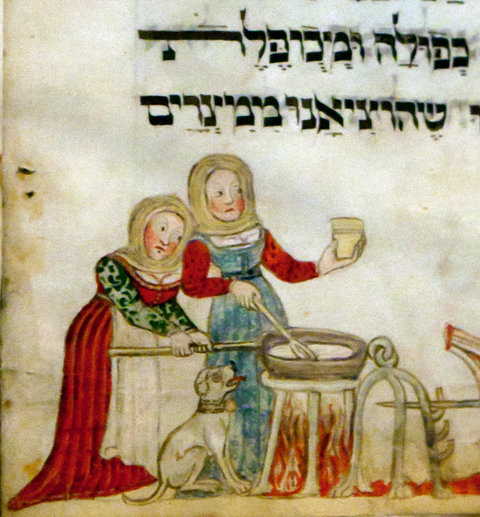 כְּפוּלָה וּמְכוּפֶּלֶת
שֶׁהוֹצִיאָנוּ מִמִּצְרַיִם